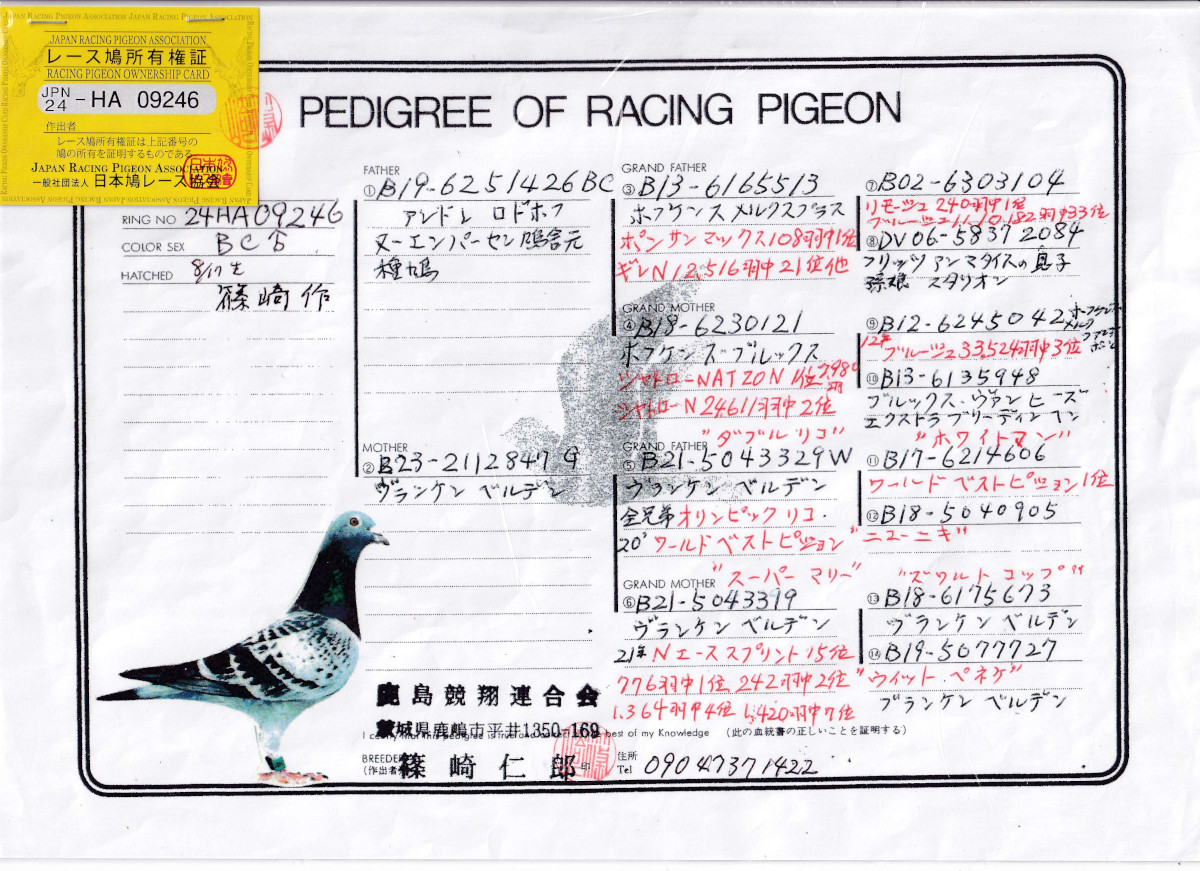 JAPAN RACING PIGEON ASSOCIATION JAPAN RACING PIGEON ASSOCIATION
JAPAN RACING PIGEON ASSOCIATION
レース鳩所有権証
RACING PIGEON OWNERSHIP CARD
JPN 24 -HA 09246
作出者
レース鳩所有権証は上記番号の
鳩の所有を証明するものである
JAPAN RACING PIGEON ASSOCIATION
一般社団法人 日本鳩レース協会
PEDIGREE OF RACING PIGEON
RING NO 24HA09246
COLOR SEX BC
HATCHED 8/17生
篠崎作
FATHER
① B19-6251426BC
アンドレ ロドホフ
ヌーエンパーセン鳩舎元
種鳩
MOTHER
② B23-2112847 G
ヴランケン ベルデン
GRAND FATHER
③ B13-6165513
ホフケンス メルクスプラス
ポンサンマックス108羽中1位
ギレN12,516羽中21位他
GRAND MOTHER
④ B18-6230121
ホフケンス・ブルックス
シャトローNATZON 1位
シャトローN24611羽中2位
"ダブルリコ"
GRAND FATHER
⑤ B21-5043329W
ヴランケン ベルデン
全兄弟オリンピックリコ.
20' ワールドベストピジョン
"スーパーマリー"
GRAND MOTHER
⑥ B21-5043319
ヴランケン ベルデン
21年Nエーススプリント15位
776羽中1位 242羽中2位
1.364羽中4位 1,420羽中7位
⑦ B02-6303104
リモージュ240羽中1位
ブルージュ11,10,182羽中33位
⑧ DV06-58372084
フリッツアンマタイスの息子
孫娘 スタリオン
⑨ B12-6245042
12年 ブルージュ33,524羽中3位
⑩ B13-6135948
ブルックス.ヴァンヒーズ
エクストラブリーディンヘン
"ホワイトマン"
⑪ B17-6214606
ワールドベストピジョン1位
⑫ B18-5040905
"ニューニキ"
"ズワルトコップ"
⑬ B18-6175673
ヴランケン ベルデン
⑭ B19-5077727
"ウィット・ペネケ"
ブランケン ベルデン
鹿島競翔連合会
茨城県鹿嶋市平井1350-169
best of my Knowledge (この血統書の正しいことを証明する)
BREEDER (作出者) 篠崎仁郎 印
住所
Tel 09047371422